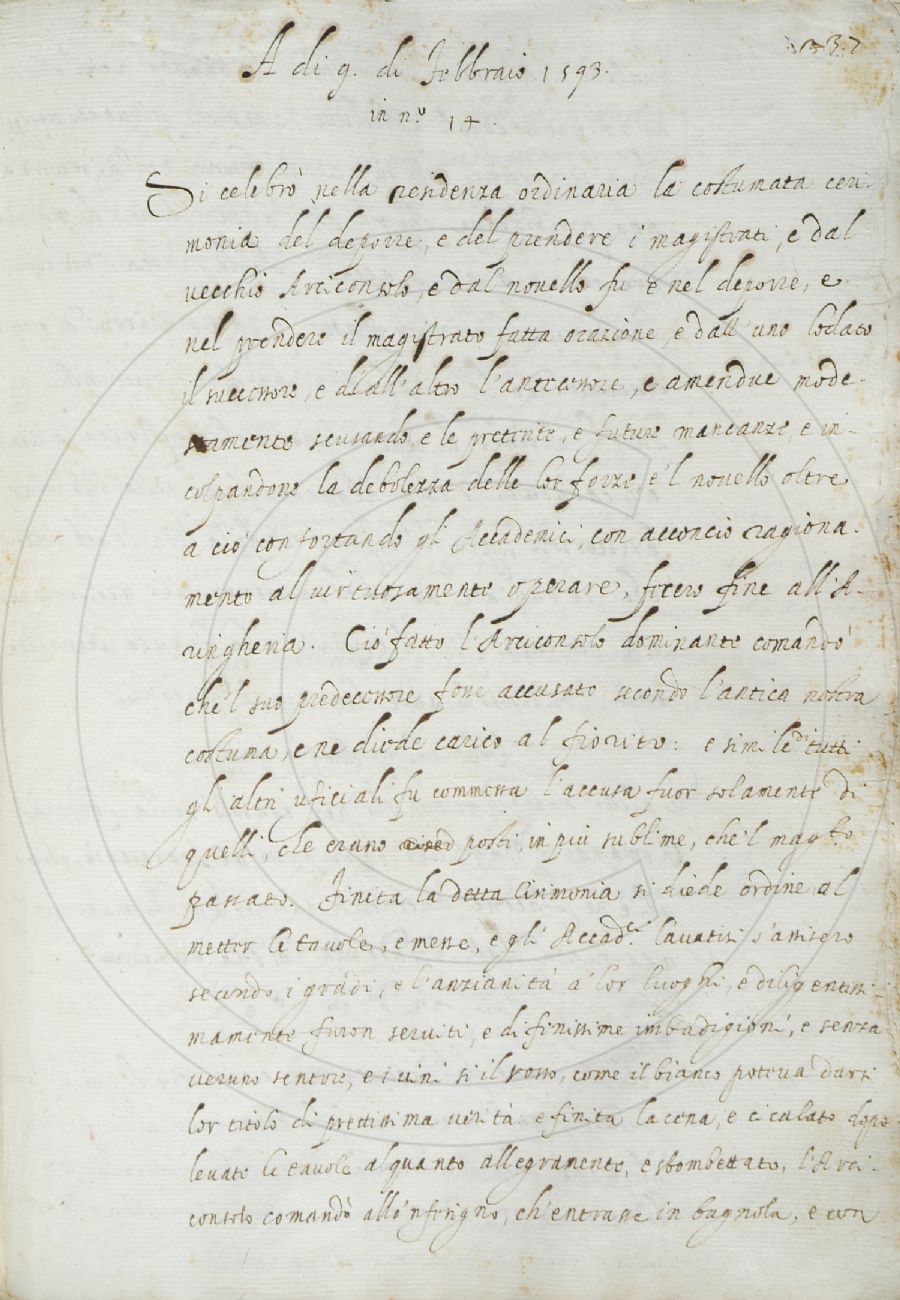 337
A di 9. di Febbraio 1593.
in n.º 14.
Si celebrò nella residenza ordinaria la costumata ceri-
monia del deporre, e del prendere i magistrati, e dal
vecchio Arciconsolo, e dal novello fu e nel deporre, e
nel prendere il magistrato fatta orazione, e dall'uno lodato
il successore, e dall'altro l'antecessore, e amendue mode-
stamente scusando, e le presenti, e future mancanze, e in-
colpandone la debolezza delle lor forze, e'l novello oltre
a ciò confortando gl'Accademici, con acconcio ragiona-
mento al virtuosamente operare, fecero fine all'A-
ringheria. Ciò fatto l'Arciconsolo dominante comandò
che'l suo predecessore fosse accusato secondo l'antica nostra
costuma, e ne diede carico al fiorito: e simile di tutti
gli altri uficiali fu commessa l'accusa fuor solamente di
quelli, che erano posti, in più sublime, che'l mag.to
passato. Finita la detta Cirimonia si diede ordine al
metter le tavole, e messe, e gli Accad.ci lavatisi s'assisero
secondo i gradi, e l'anzianità a' lor luoghi, e diligentissi-
mamente furon serviti, e di finissime imbadigioni, e senza
veruno sentore, e i vini sì il rosso, come il bianco poteva darsi
lor titolo di prettissima verità e finita la cena, e cicalato dopo
levate le tavole alquanto allegramente, e sbombettato, l'Arci-
consolo comandò allo'nferigno, ch'entrasse in bugnola, e con